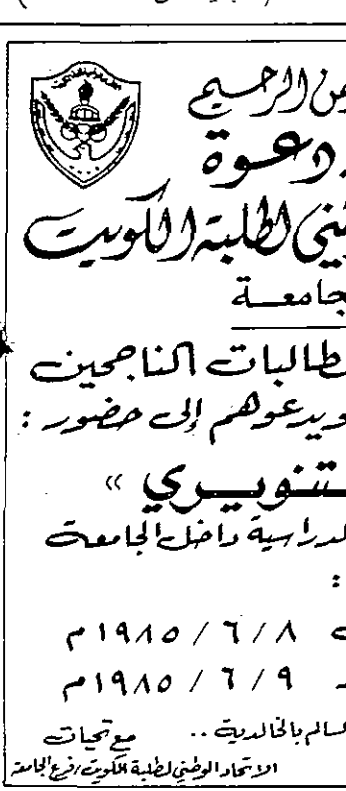 من الرحيم
دعوة
ني لطلبة الكويت
جامعة
طالبات الناجحين
ويدعوهم إلى حضور :
تنويري »
لدراسية داخل الجامعة
:
ت ١٩٨٥/٦/٨ م
د ١٩٨٥/٦/٩ م
لسالم بالخالدية .. مع تحيات
الاتحاد الوطني لطلبة الكويت / فرع الجامعة